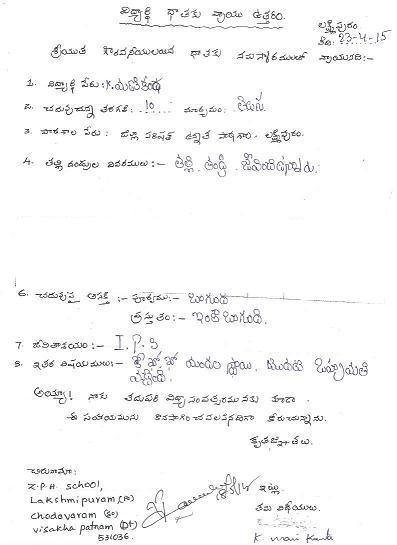 విద్యార్థి దాతకు వ్రాయు ఉత్తరం.
లక్ష్మీపురం
తేది: 23-4-15
శ్రీయుత గౌరవనీయులయిన దాతకు నమస్కారములతో వ్రాయునది:-
1. విద్యార్థి పేరు: K. మణికంఠ
2. చదువుచున్న తరగతి: 10 మాధ్యమం: తెలుగు
3. పాఠశాల పేరు: జిల్లా పరిషత్ ఉన్నత పాఠశాల. లక్ష్మీపురం.
4. తల్లి దండ్రుల వివరములు:- తల్లి, తండ్రి, జీవించివున్నారు.
6. చదువుపై ఆసక్తి :- పూర్వము:- బాగుంది
ప్రస్తుతం:- ఇంకా బాగుంది.
7. జీవితాశయం:- I.P.S
8. ఇతర విషయములు:- మండలం స్థాయి. మొదటి బహుమతి
వచ్చింది
అయ్యా! నాకు తదుపరి విద్యా సంవత్సరమునకు కూడా
ఈ సహాయమును కొనసాగించవలసినదిగా కోరుచున్నాను.
కృతజ్ఞతలు.
చిరునామా:
Z.P.H. SCHOOL,
Lakshmipuram (PO)
Chodavaram (SO)
Visakha patnam (DT)
531036.
ఇట్లు
తమ విధేయులు.
K mani Kanta